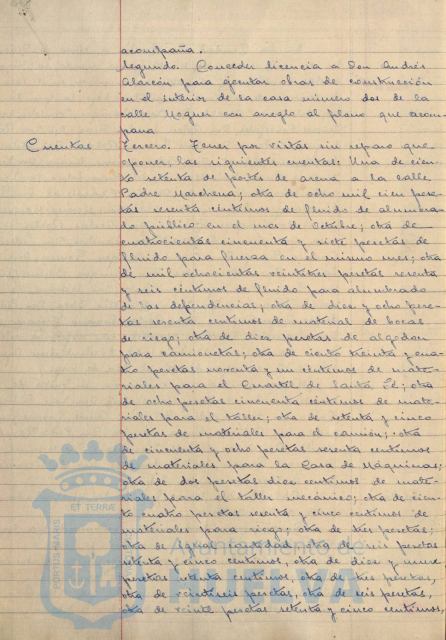 acompaña.
Segundo. Conceder licencia a Don Andrés
Alarcón para ejecutar obras de construcción
en el interior de la casa número dos de la
calle Moguer con arreglo al plano que acom-
paña
Cuentas
Tercero. Tener por vistas sin reparo que
oponer, las siguientes cuentas: Una de cien-
to setenta de portes de arena a la calle
Padre Marchena; otra de ocho mil cien pese-
tas sesenta céntimos de fluido de alumbra-
do público en el mes de Octubre; otra de
cuatrocientas cincuenta y siete pesetas de
fluido para fuerza en el mismo mes; otra
de mil ochocientas veintitres pesetas sesenta
y seis céntimos de fluido para alumbrado
de las dependencias; otra de diez y ocho pese-
tas sesenta céntimos de material de bocas
de riego; otra de diez pesetas de algodon
para camionetas; otra de ciento treinta y cua-
tro pesetas noventa y un céntimos de mate-
riales para el Cuartel de Santa Fé; otra
de ocho pesetas cincuenta céntimos de mate-
riales para el taller; otra de setenta y cinco
pesetas de materiales para el camión; otra
de cincuenta y ocho pesetas sesenta céntimos
de materiales para la Casa de Máquinas;
otra de dos pesetas diez céntimos de mate-
riales para el taller mecánico; otra de cien-
to cuatro pesetas sesenta y cinco céntimos de
materiales para riego; otra de tres pesetas;
otra de igual cantidad, otra de seis pesetas
setenta y cinco céntimos, otra de diez y nueve
pesetas setenta céntimos, otra de tres pesetas,
otra de veintiseis pesetas, otra de seis pesetas,
otra de veinte pesetas setenta y cinco céntimos,
PORTUS MARIS
ET TERRÆ
Ayuntamiento de
HUELVA